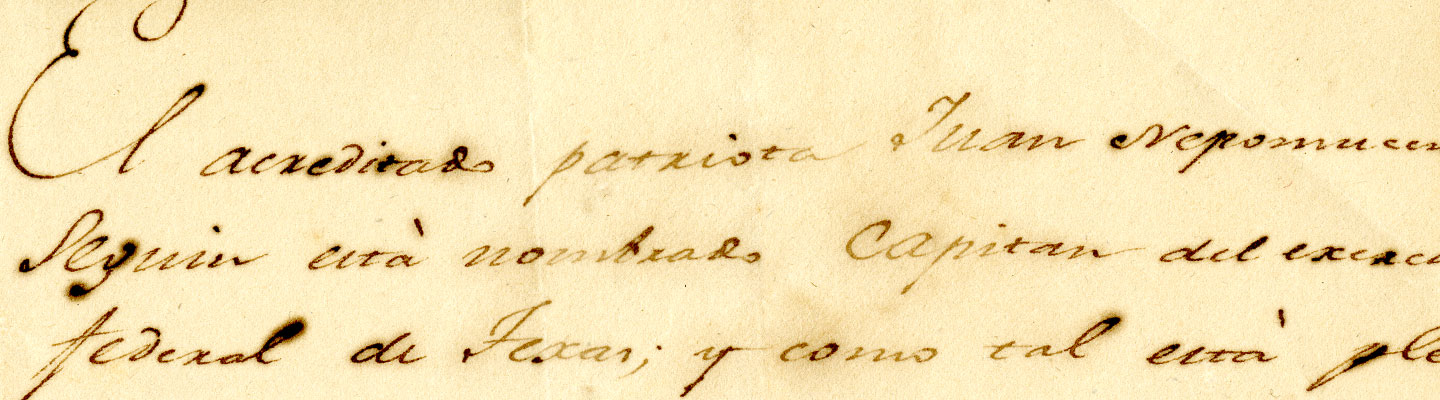 El acreditado patriota Juan Nepomucen
Seguin està nombrado Capitan del exerci
federal de Texas; y como tal està ple